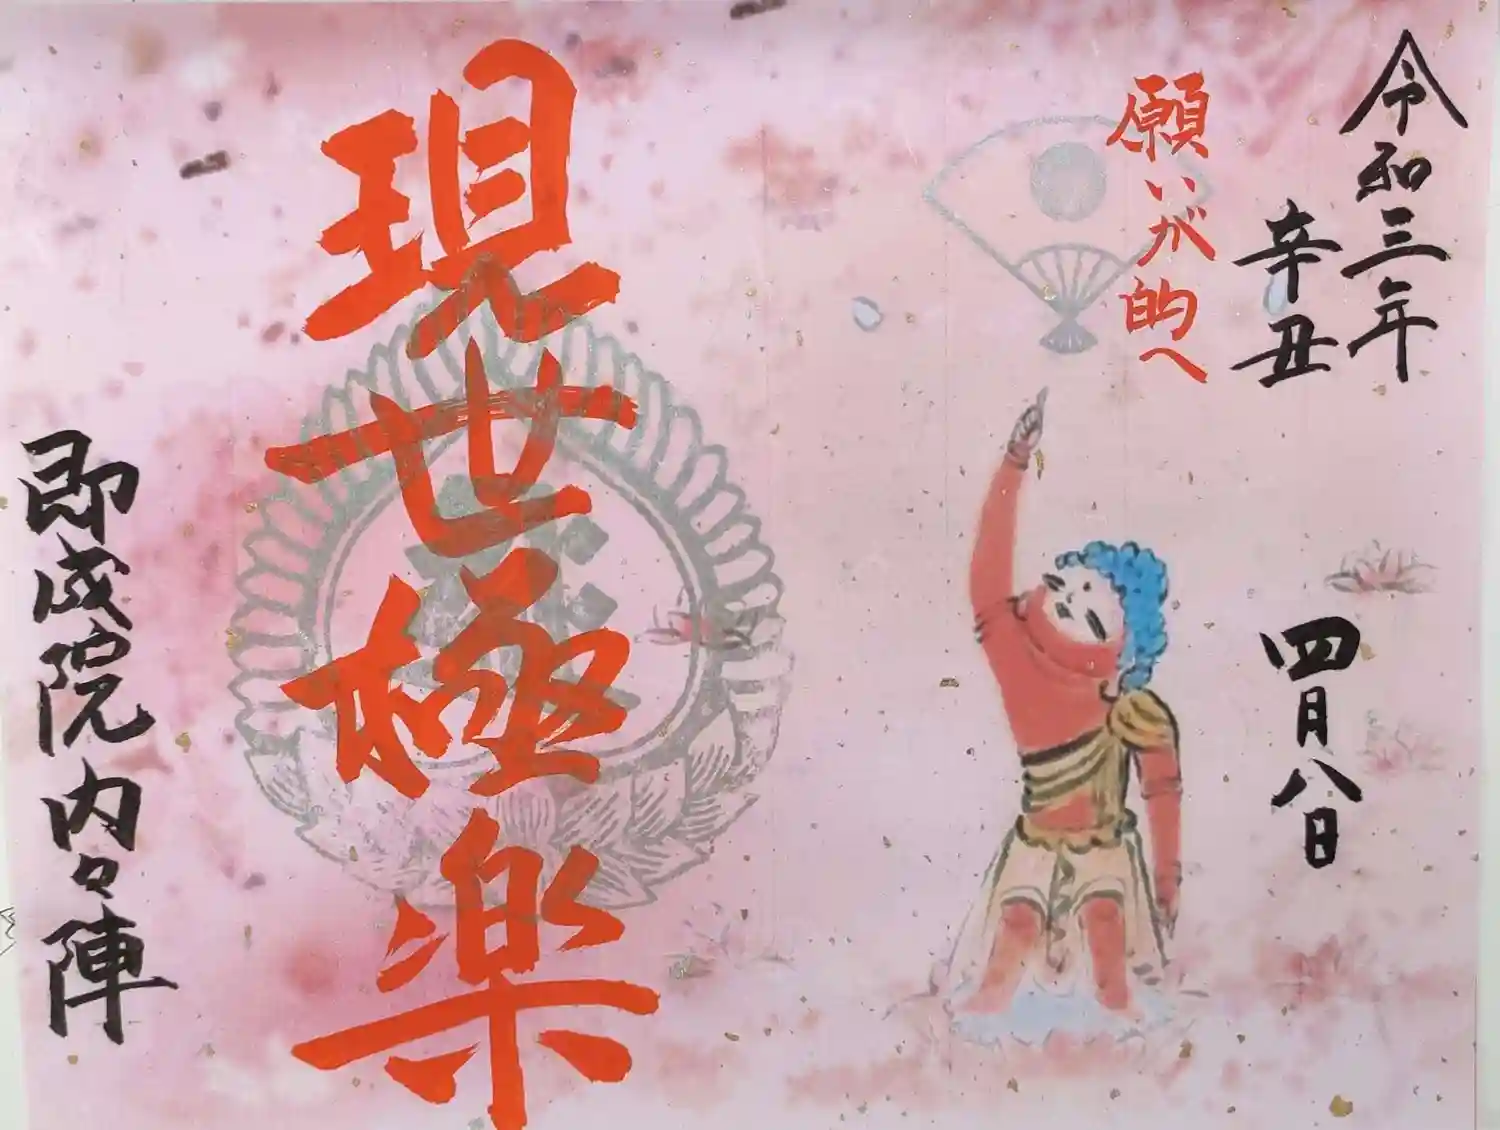 令和三年
辛丑
四月八日
願いが的へ
現世極楽
即成院内々陣